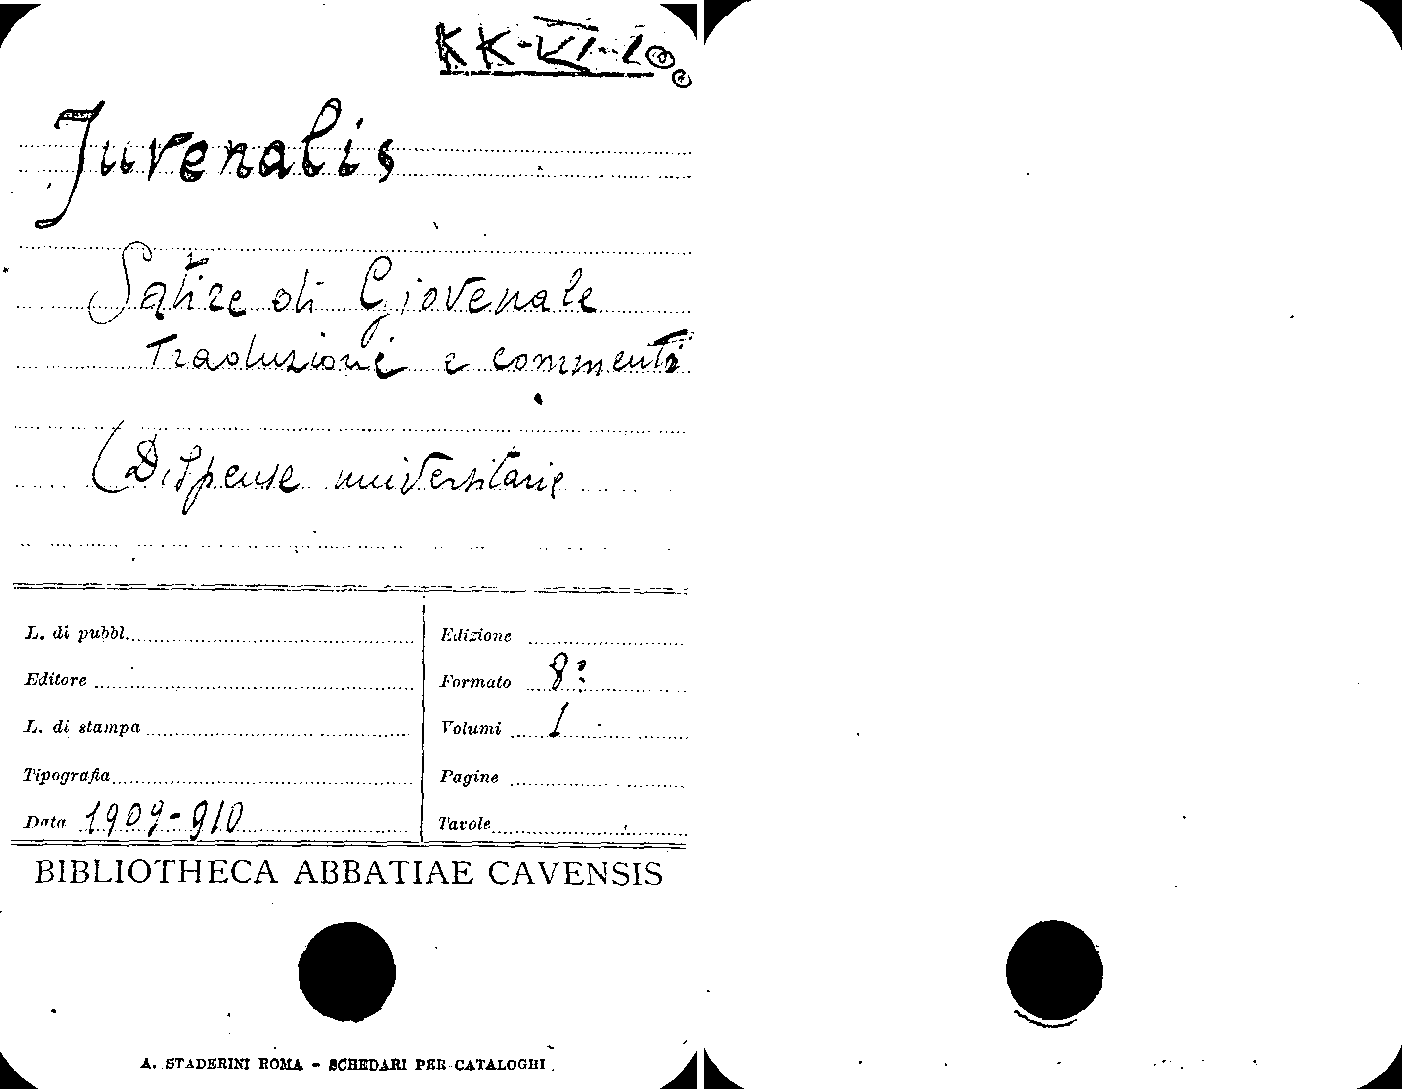 KK-VI-20
Juvenalis
Satire di Giovenale
Traduzione e commenti
(Dispense universitarie
L. di pubbl.
Edizione
Editore
Formato 8º
L. di stampa
Volumi 1
Tipografia
Pagine
Data 1909-910
Tavole
BIBLIOTHECA ABBATIAE CAVENSIS
A. STADERINI ROMA - SCHEDARI PER CATALOGHI